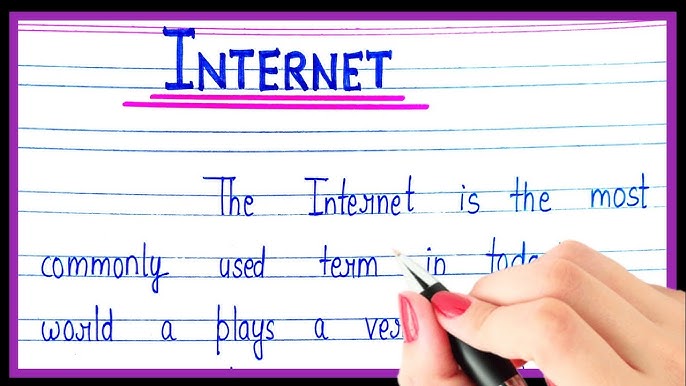 INTERNET
The Internet is the most
commonly used term in
world a plays a